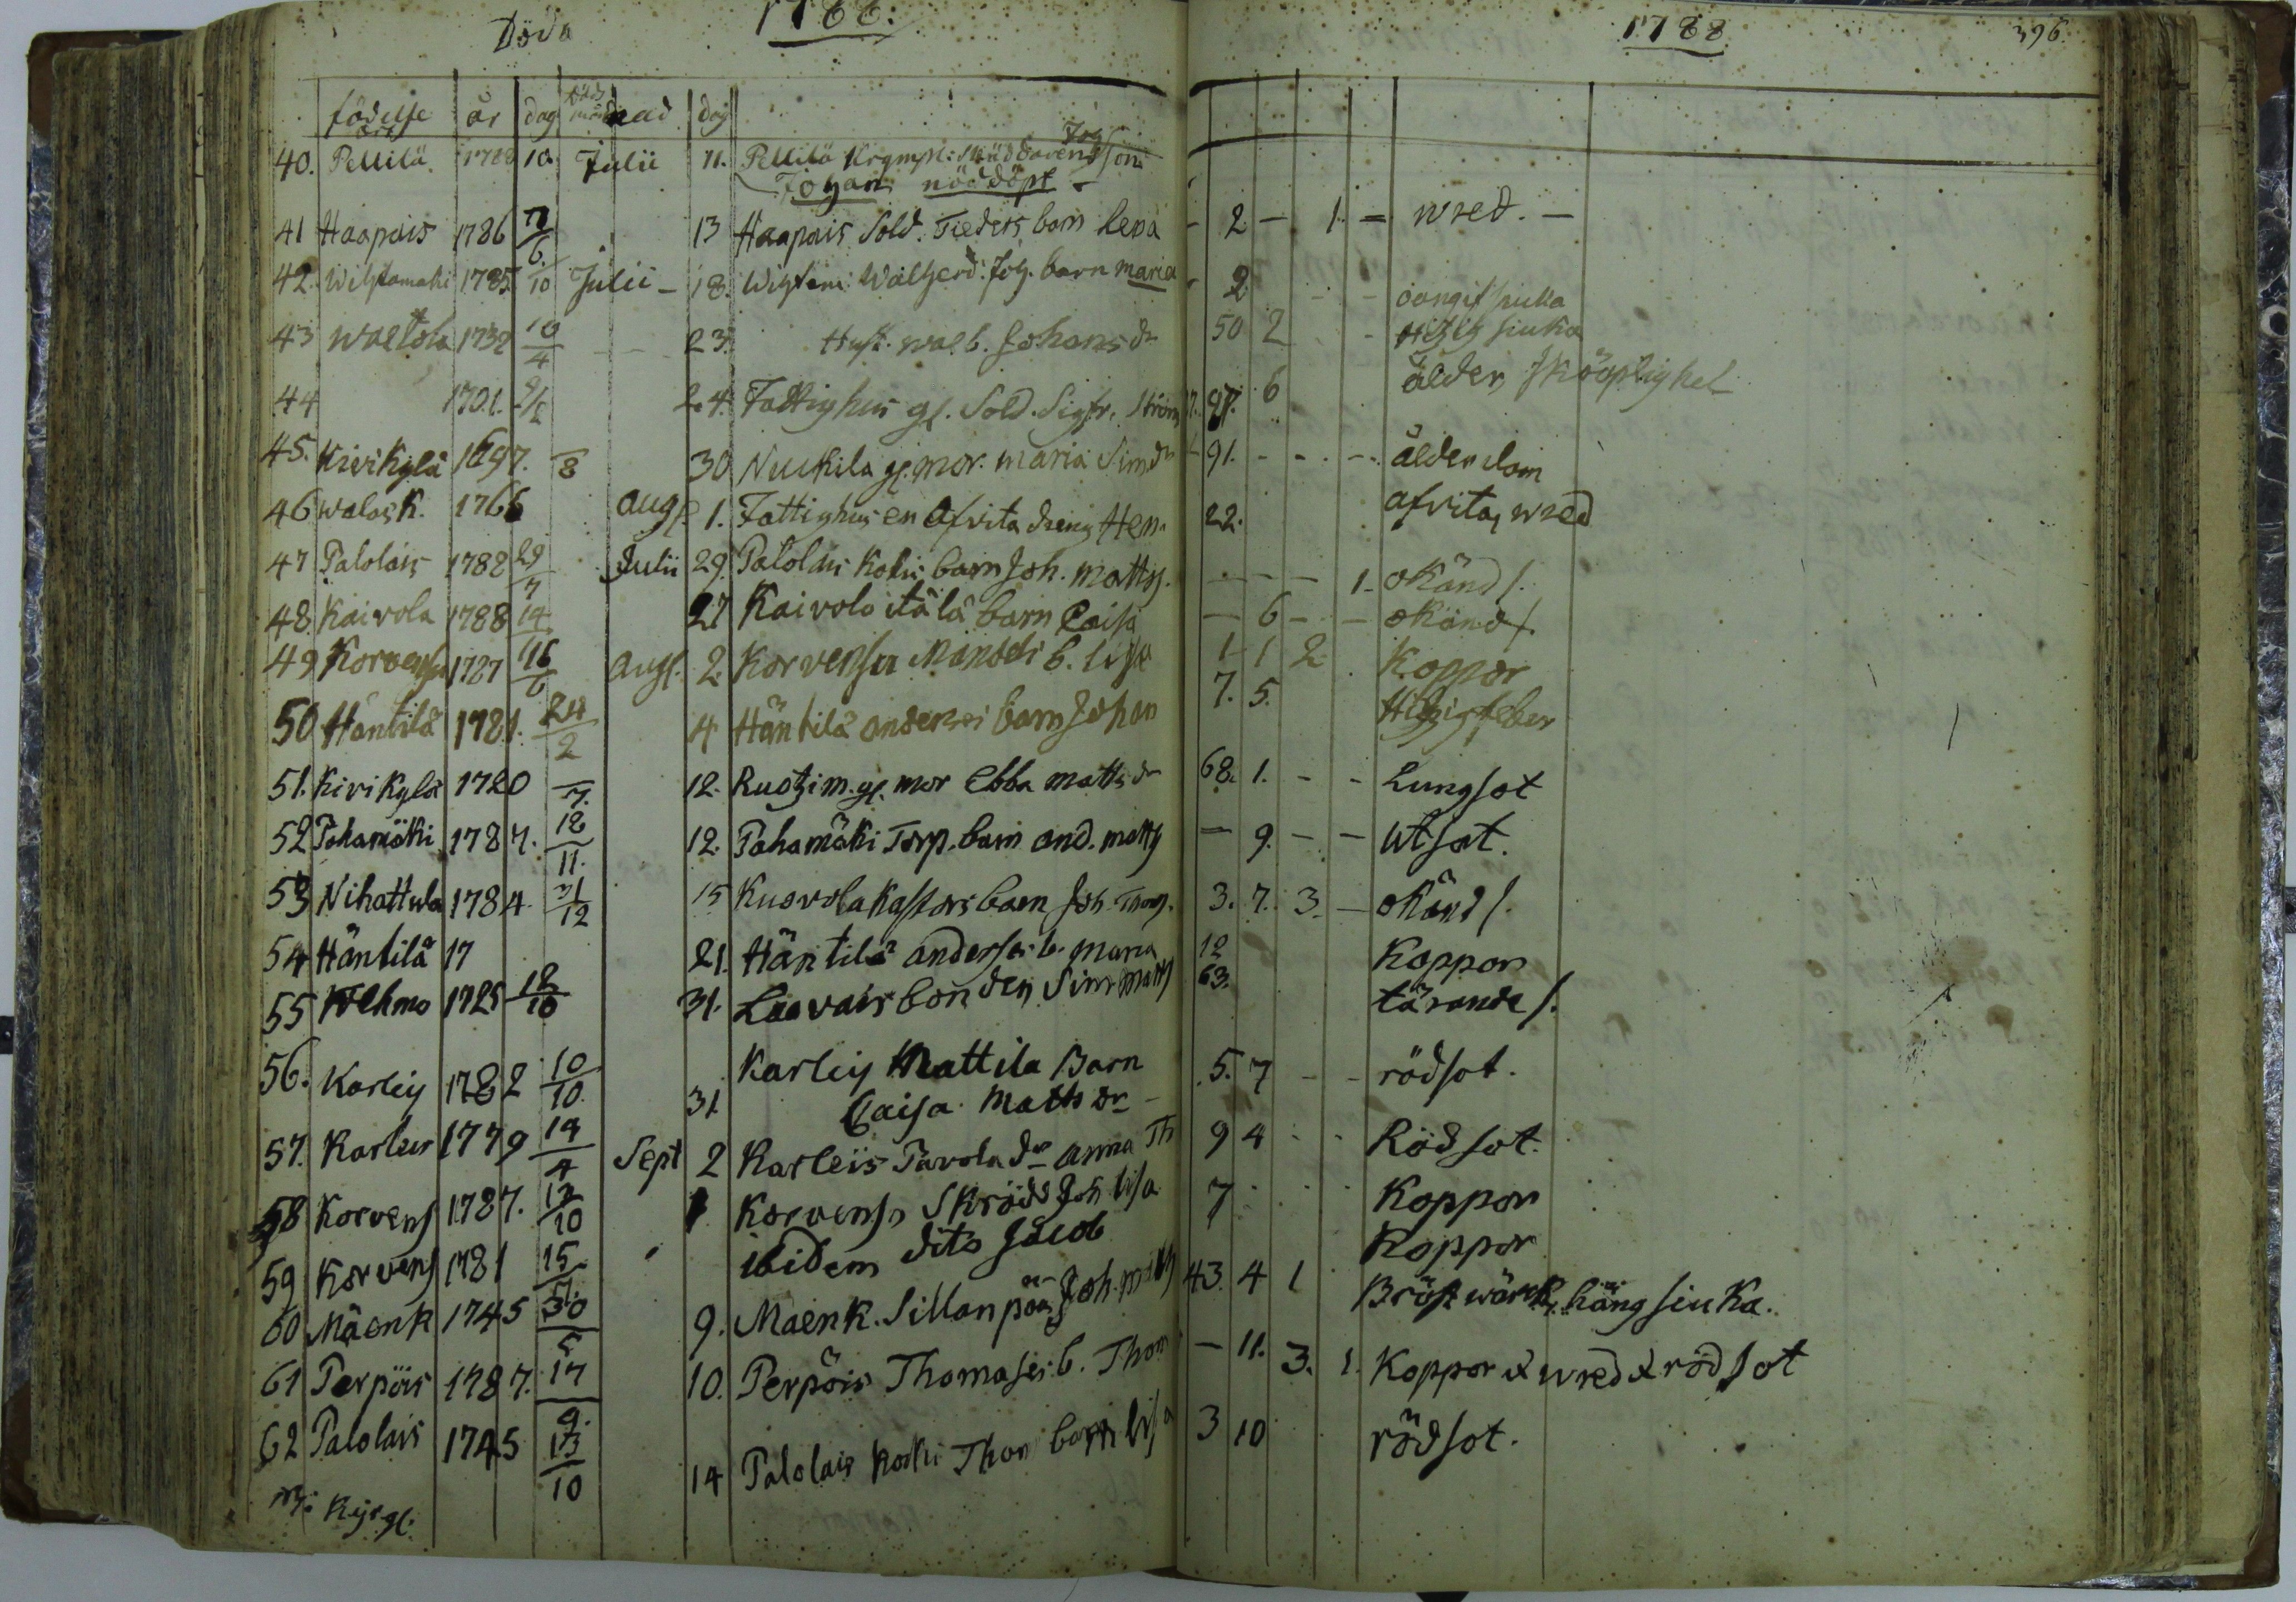 Döda 1788. 1788 396
födelse ort år dag Döds månad dag
40. Pellilä 1788 10. Julii 11. Pellilä Joh son
Johan nöddöpt
41 Haapais 1786 13 Haapais Sold. Tieders barn Lena - 2 - 1. - wred. -
42. 1785 10 Julii - 18. Joh. barn maria 2 - -
43 Waltola 1732 10/4 23. Johansdr 50 2 - Hitzig siuka
44 1701. 24. Fattighus gl. Sold. Sigfr. Ström 87. 6 ålders
45. Kivikylä 1697. /8 30 Nuckila gl. mor. maria Simdr - 91. - - - ålderdom
46 walask. 1766 aug. 1. Fattighus en Afvita dreng Hen. 22. afvita, wred
47 Palolais 1788 29/7 Julii 29. Palolais Koki barn Joh. matts. - - - 1. okänd s.
48. Kaivola 1788 14 27 Kaivola itälä barn Caisa - 6 - - okänd s.
49 Korvensu 1787 16/6 augs. 2. Korvensu Manseli b. lisa 1 1 2 Koppor
50 Häntilä 1781. 24/2 4 Häntilä anderssi barn Johan 7. 5. Hitzig feber
51. Kivikylä 1720 /7. 12. m. gl. mor Ebba mattsdr 68. 1. - - Lungsot
52 Pahamäki 1787. 12/11. 12. Pahamäki Torp. barn and. matts - 9. - - Utsot.
53 Nihattula 1784 31/12 15 Kuovola Kastars barn Joh. Thoms. 3. 7. 3. - okänd s.
54 Häntilä 17 21. Häntilä anderssi b. maria 12 Koppor
55 Wehmo 1725 12/10 31. Laavais bonden Sim matts 63. tärande s.
56. Karleis 1782 10/10. 31. Karleis Mattila Barn 5. 7 - - rödsot.
Caisa Mattsdr -
57. Karleis 1779 14/4 Sept 2 Karleis Pavola dr anna Th 9 4 - - Rödsot.
58 Korvens 1787. 12/10 1 Korvens Skrädd Joh lisa 7 Koppor
59 Korvens 1781 15/7. ibidem dito Jacob Koppor
60 Mäenk 1745 30/5 9. Mäenk. Sillanpää Joh. matts 43. 4 1 Bröst wärk, häng siuka.
61 Perpöis 1787. 17/9. 10. Perpöis Thomases b. Thom - 11. 3. 1. Koppor & wred & rödsot
62 Palolais 1745 13/10 14 Palolais Koski Thom barn lisa 3 10 rödsot.